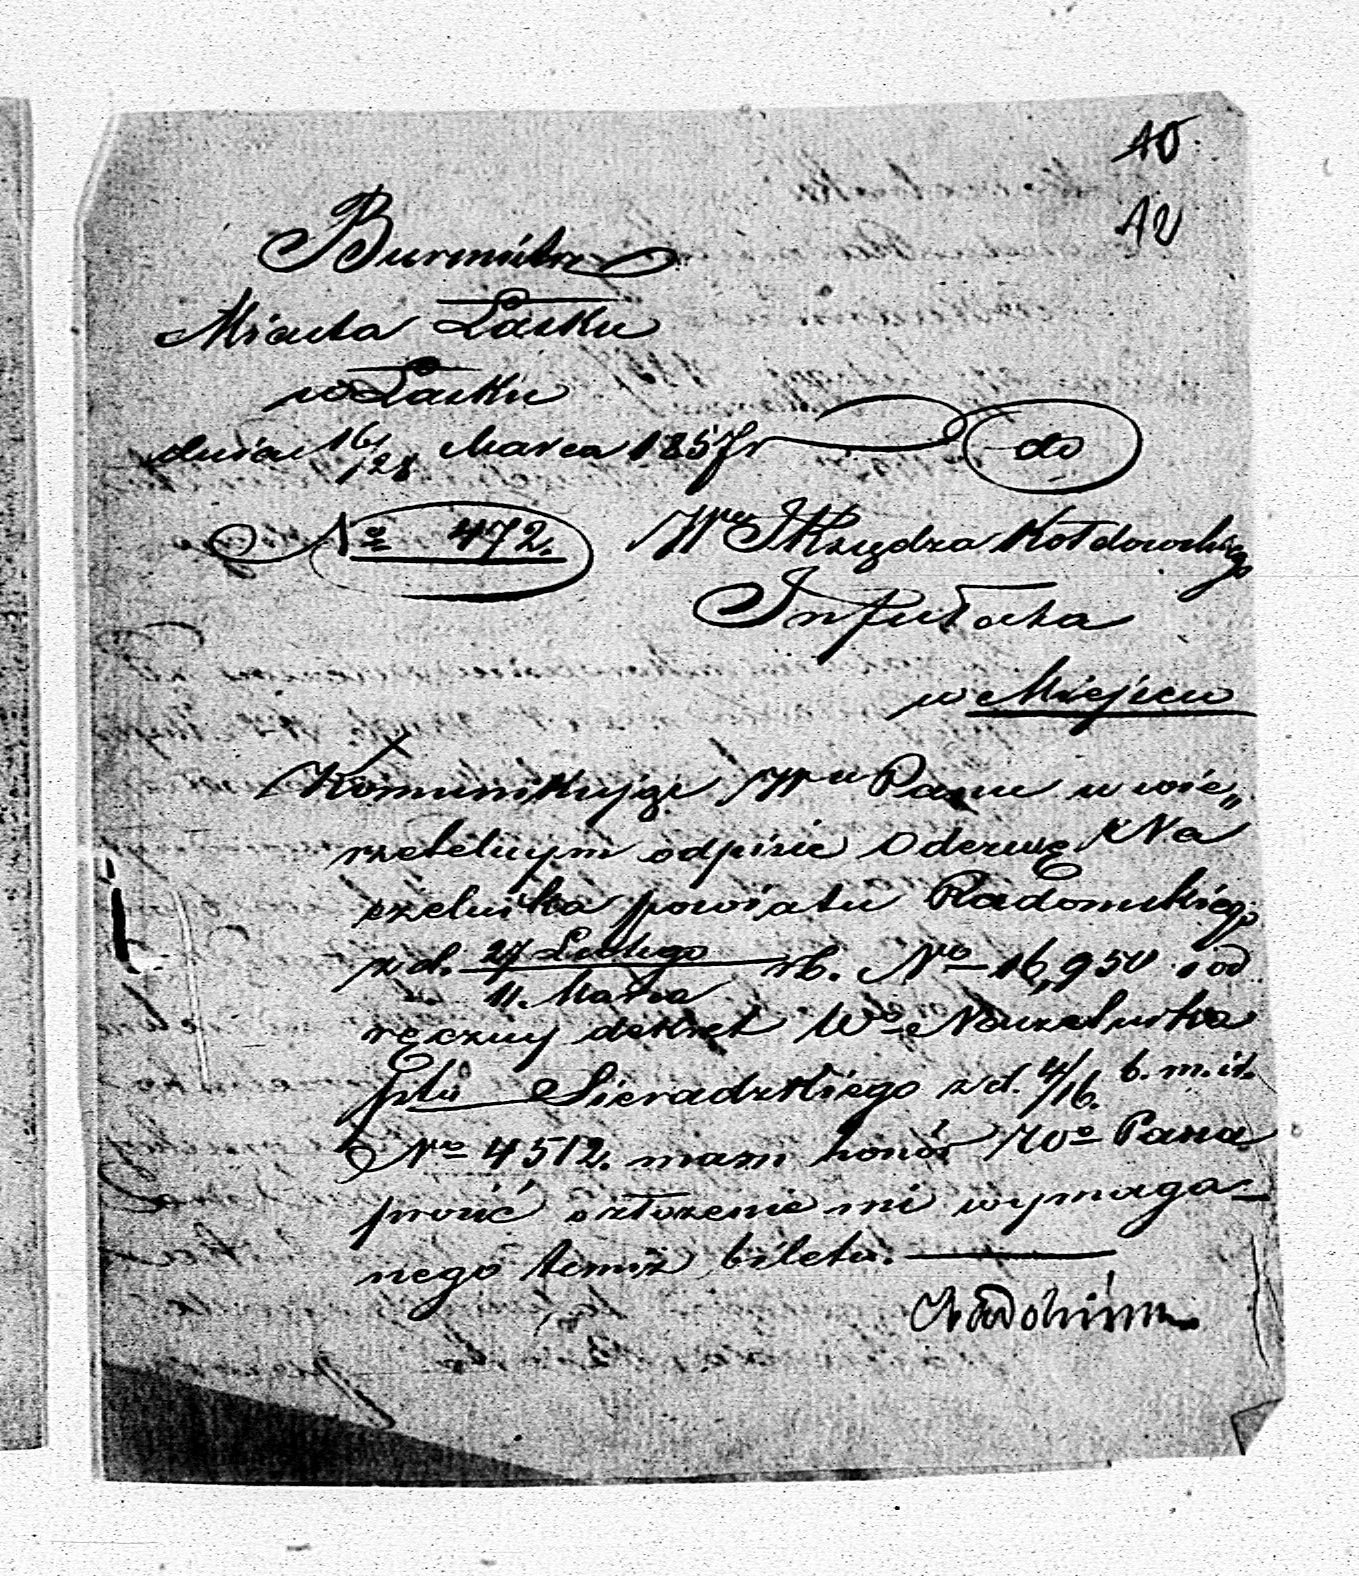 10.
12
Burmistrz
Miasta Łasku
w Łasku
dnia 16/28 Marca 1857 r
do
No 472.
Wo JXiędza Kołdowskiego
Infułata
w Miejscu
Kommunikując Wu Panu w wie„
rzetelnym odpisie Odezwę Na
czelnika powiatu Radomskiego
z d. 27 Lutego rb. No 16,950 i od
11. Marca
ręczny dekret Wo Naczelnika
Ptu Sieradzkiego z d. 4/16. b. m. i r.
No 4512. mam honor Wo Pana
prosić o złożenie mi wymaga-
nego temiż biletu.